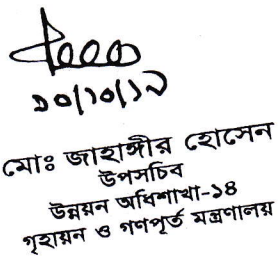 ১০/১০/১২
মোঃ জাহাঙ্গীর হোসেন
উপসচিব
উন্নয়ন অধিশাখা-১৪
গৃহায়ন ও গণপূর্ত মন্ত্রণালয়